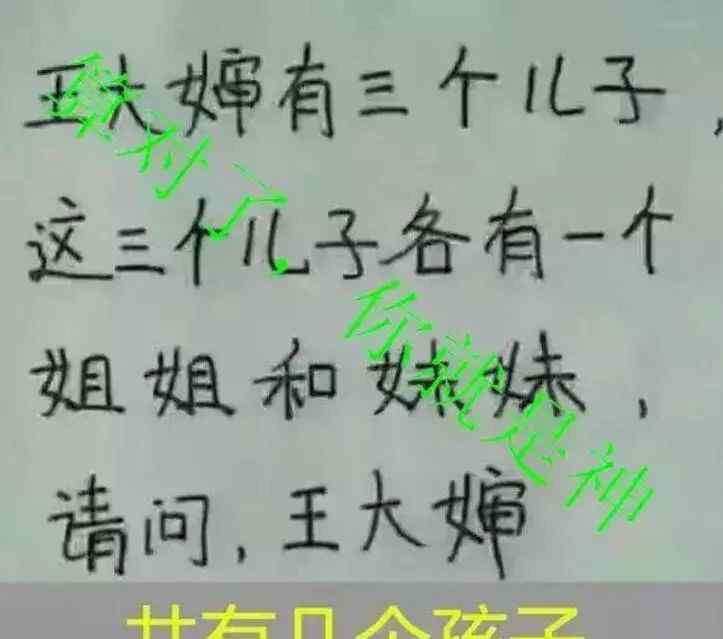 王大婶有三个儿子,
这三个儿子各有一个
姐姐和妹妹,
请问,王大婶
共有几个孩子
你就是神